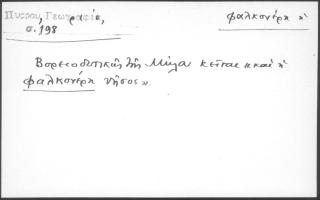 Πύρρου, Γεωγραφία,
σ. 198
φαλκονέρη ἡ
Βορειοδυτικῶς τῆς Μήλου κεῖται «καὶ ἡ
φαλκονέρη νῆσος».